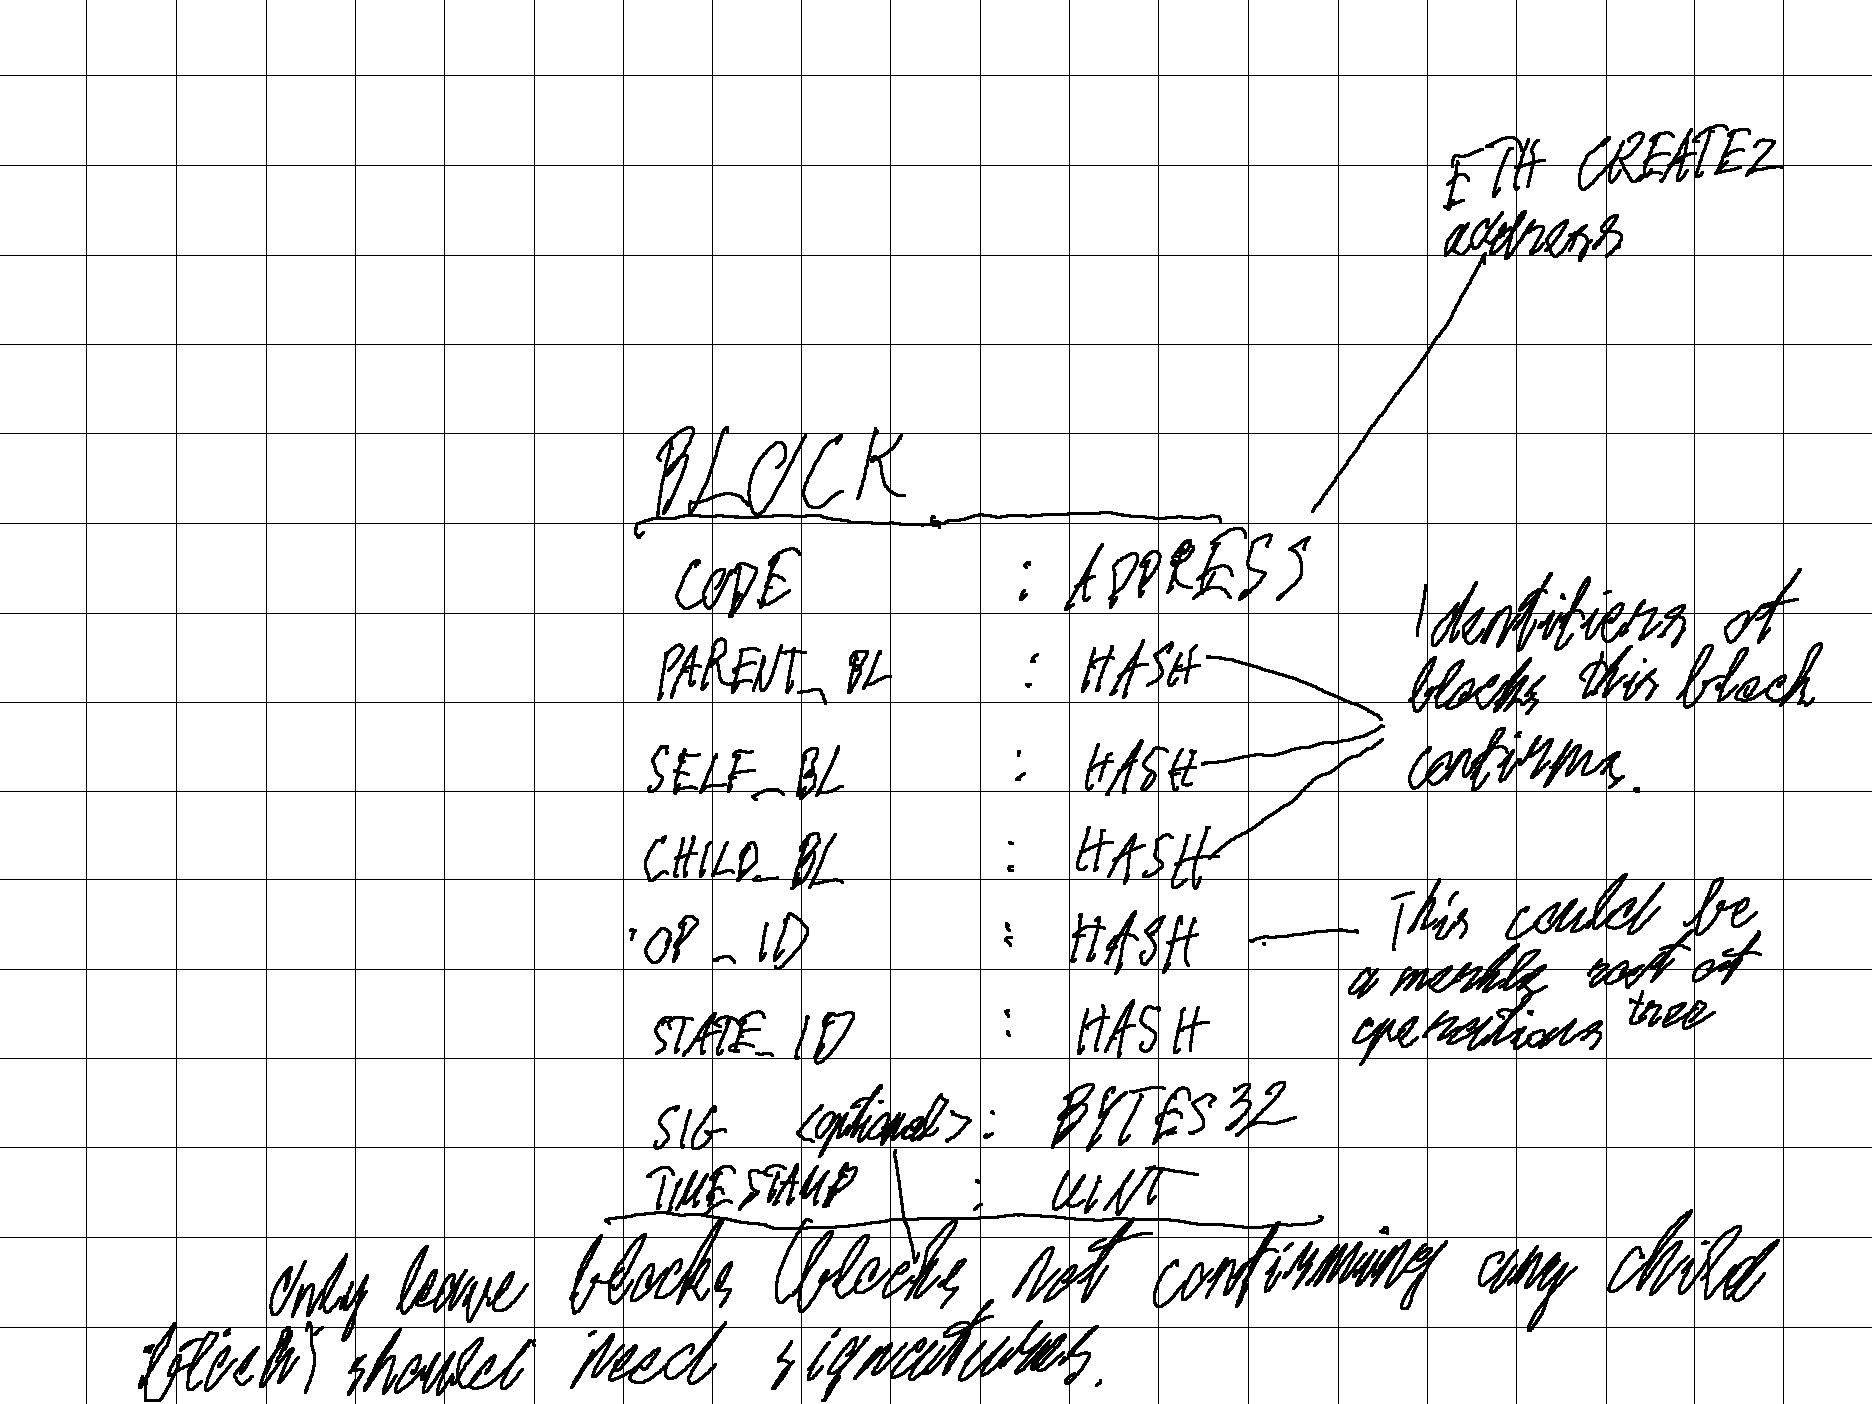 ETH CREATE2
address
BLOCK
CODE : ADDRESS
PARENT_BL : HASH
SELF_BL : HASH
CHILD_BL : HASH
OP_ID : HASH
STATE_ID : HASH
SIG <optional> : BYTES32
TIMESTAMP : UINT
Identifiers of
blocks this block
confirms.
This could be
a merkle root of
operations tree
Only leave blocks (blocks not confirming any child
block) should need signatures.